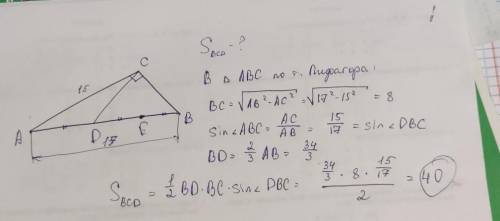 S_BCD - ?
C
15
A
D
E
B
17
В △ ABC по т. Пифагора:
BC = √(AB² - AC²) = √(17² - 15²) = 8
sin∠ABC = AC/AB = 15/17 = sin∠DBC
BD = 2/3 AB = 34/3
S_BCD = 1/2 BD · BC · sin∠DBC = (34/3 · 8 · 15/17)/2 = 40